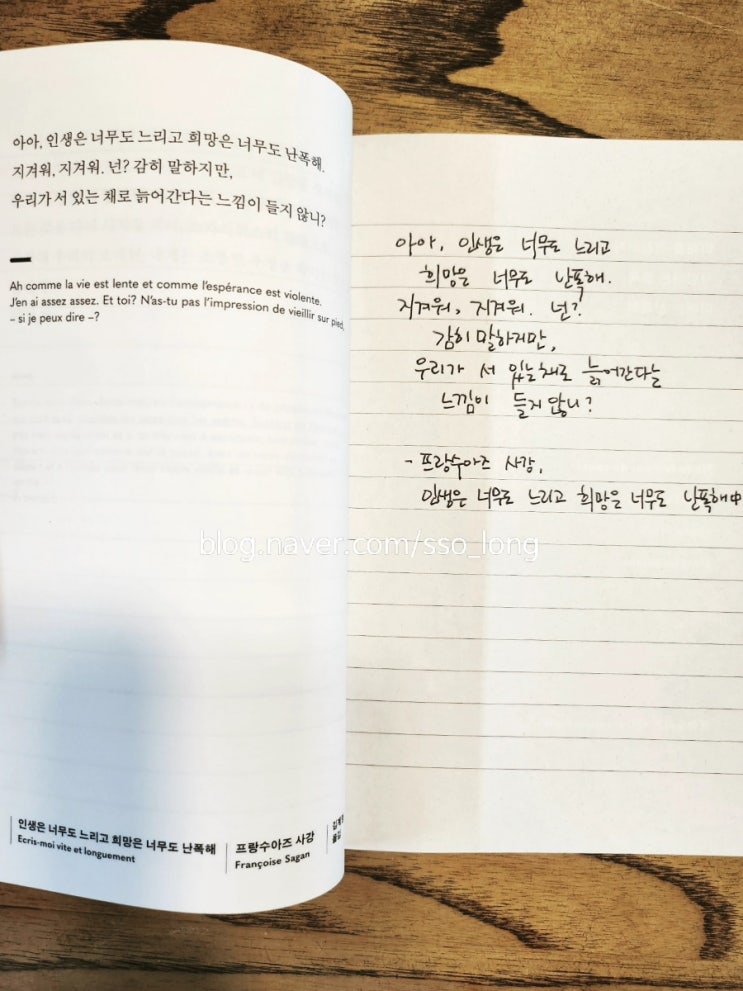 아아, 인생은 너무도 느리고 희망은 너무도 난폭해.
지겨워, 지겨워. 넌? 감히 말하지만,
우리가 서 있는 채로 늙어간다는 느낌이 들지 않니?
Ah comme la vie est lente et comme l'espérance est violente.
J'en ai assez assez. Et toi? N'as-tu pas l'impression de vieillir sur pied,
– si je peux dire –?
인생은 너무도 느리고 희망은 너무도 난폭해
Ecris-moi vite et longuement
프랑수아즈 사강
Françoise Sagan
옮김
아아, 인생은 너무도 느리고
희망은 너무도 난폭해.
지겨워, 지겨워. 넌?
감히 말하지만,
우리가 서 있는채로 늙어간다는
느낌이 들지 않니?
- 프랑수아즈 사강,
인생은 너무도 느리고 희망은 너무도 난폭해中
blog.naver.com/sso_long